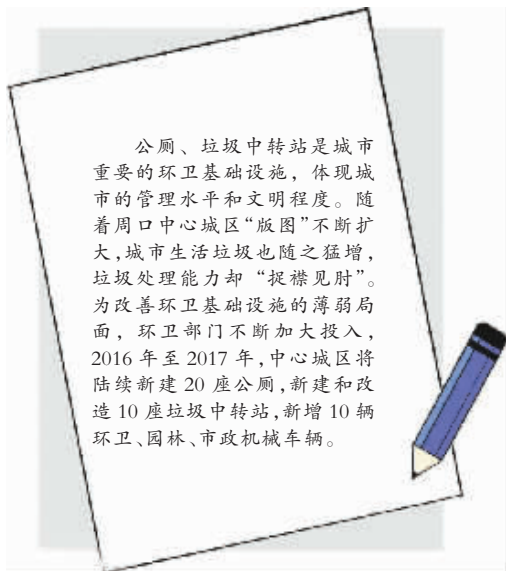 公厕、垃圾中转站是城市
重要的环卫基础设施，体现城
市的管理水平和文明程度。随
着周口中心城区“版图”不断扩
大，城市生活垃圾也随之猛增，
垃圾处理能力却“捉襟见肘”。
为改善环卫基础设施的薄弱局
面，环卫部门不断加大投入，
2016 年至 2017 年，中心城区将
陆续新建 20 座公厕，新建和改
造 10 座垃圾中转站，新增 10 辆
环卫、园林、市政机械车辆。